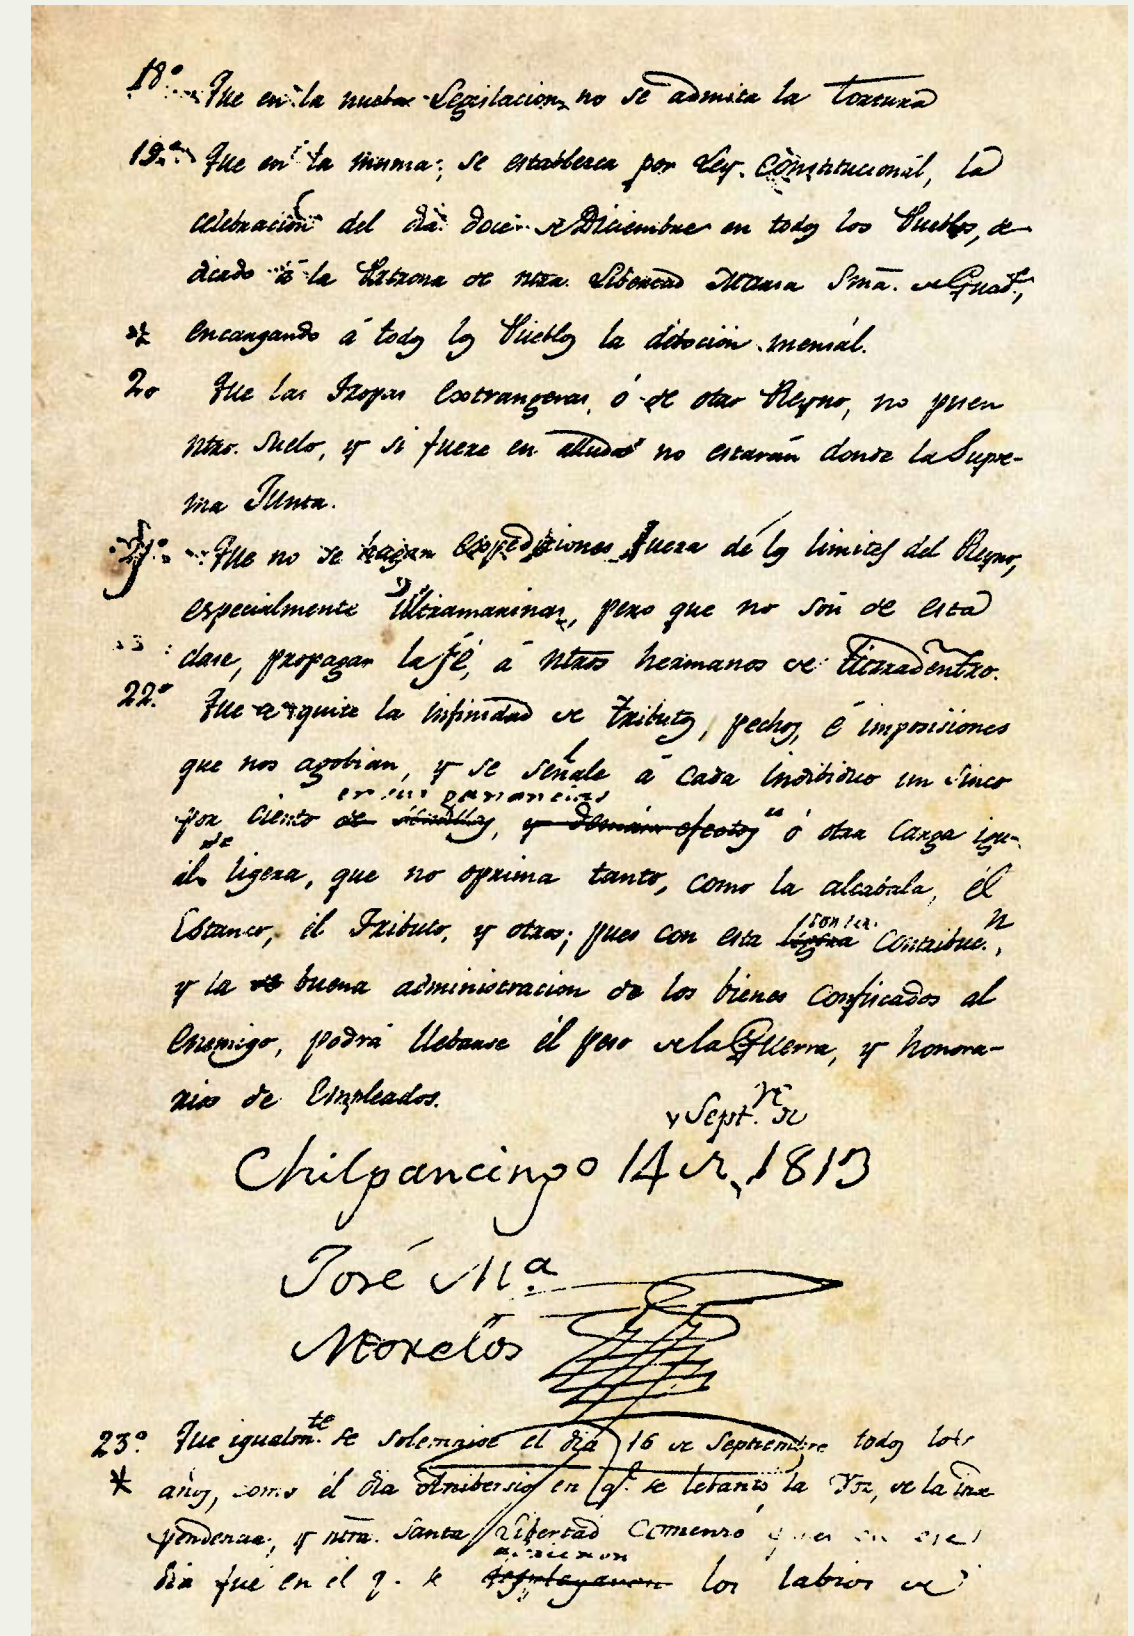 18º Que en la nueba Legislacion no se admita la tortura
19º Que en la misma, se establesca por Ley Constitucional, la
celebración del dia doce de Diciembre en todos los Pueblos, de-
dicado á la Patrona de ntra. Libertad Maria Sma. de Guad.,
encargando á todos los Pueblos la debocion mensal.
20 Que las tropas extrangeras, ó de otro Reyno, no pisen
ntro. Suelo, y si fuere en alluda no estarán donde la Supre-
ma Junta.
21º Que no se hagan expediciones fuera de los limites del Reyno,
especialmente Ultramarinas, pero que no son de esta
clase, propagar la fé, á ntros hermanos de tierradentro.
22º Que se quite la infinidad de tributos, pechos, é imposisiones
que nos agobian, y se señale á cada indibiduo un sinco
en sus ganancias
por ciento de semillas, y demás efectos ó otra carga igu-
de
al ligera, que no oprima tanto, como la alcabala, él
Estanco, él Tributo, y otros; pues con esta ligera Contribuc.n,
y la buena administracion de los bienes confiscados al
Enemigo, podrá llebarse él peso de la Guerra, y honora-
rios de Empleados.
Sept.re de
Chilpancingo 14 de 1813
José Mª.
Morelos
23º Que igualm.te se solemnise el dia 16 de Septiembre todos los
* años, como él dia Anibersio en q.e se lebantó la Voz, de la inde
pendencia, y ntra. Santa Libertad Comenzó pues en ese
dia fue en el q. se desplegaron los labios de